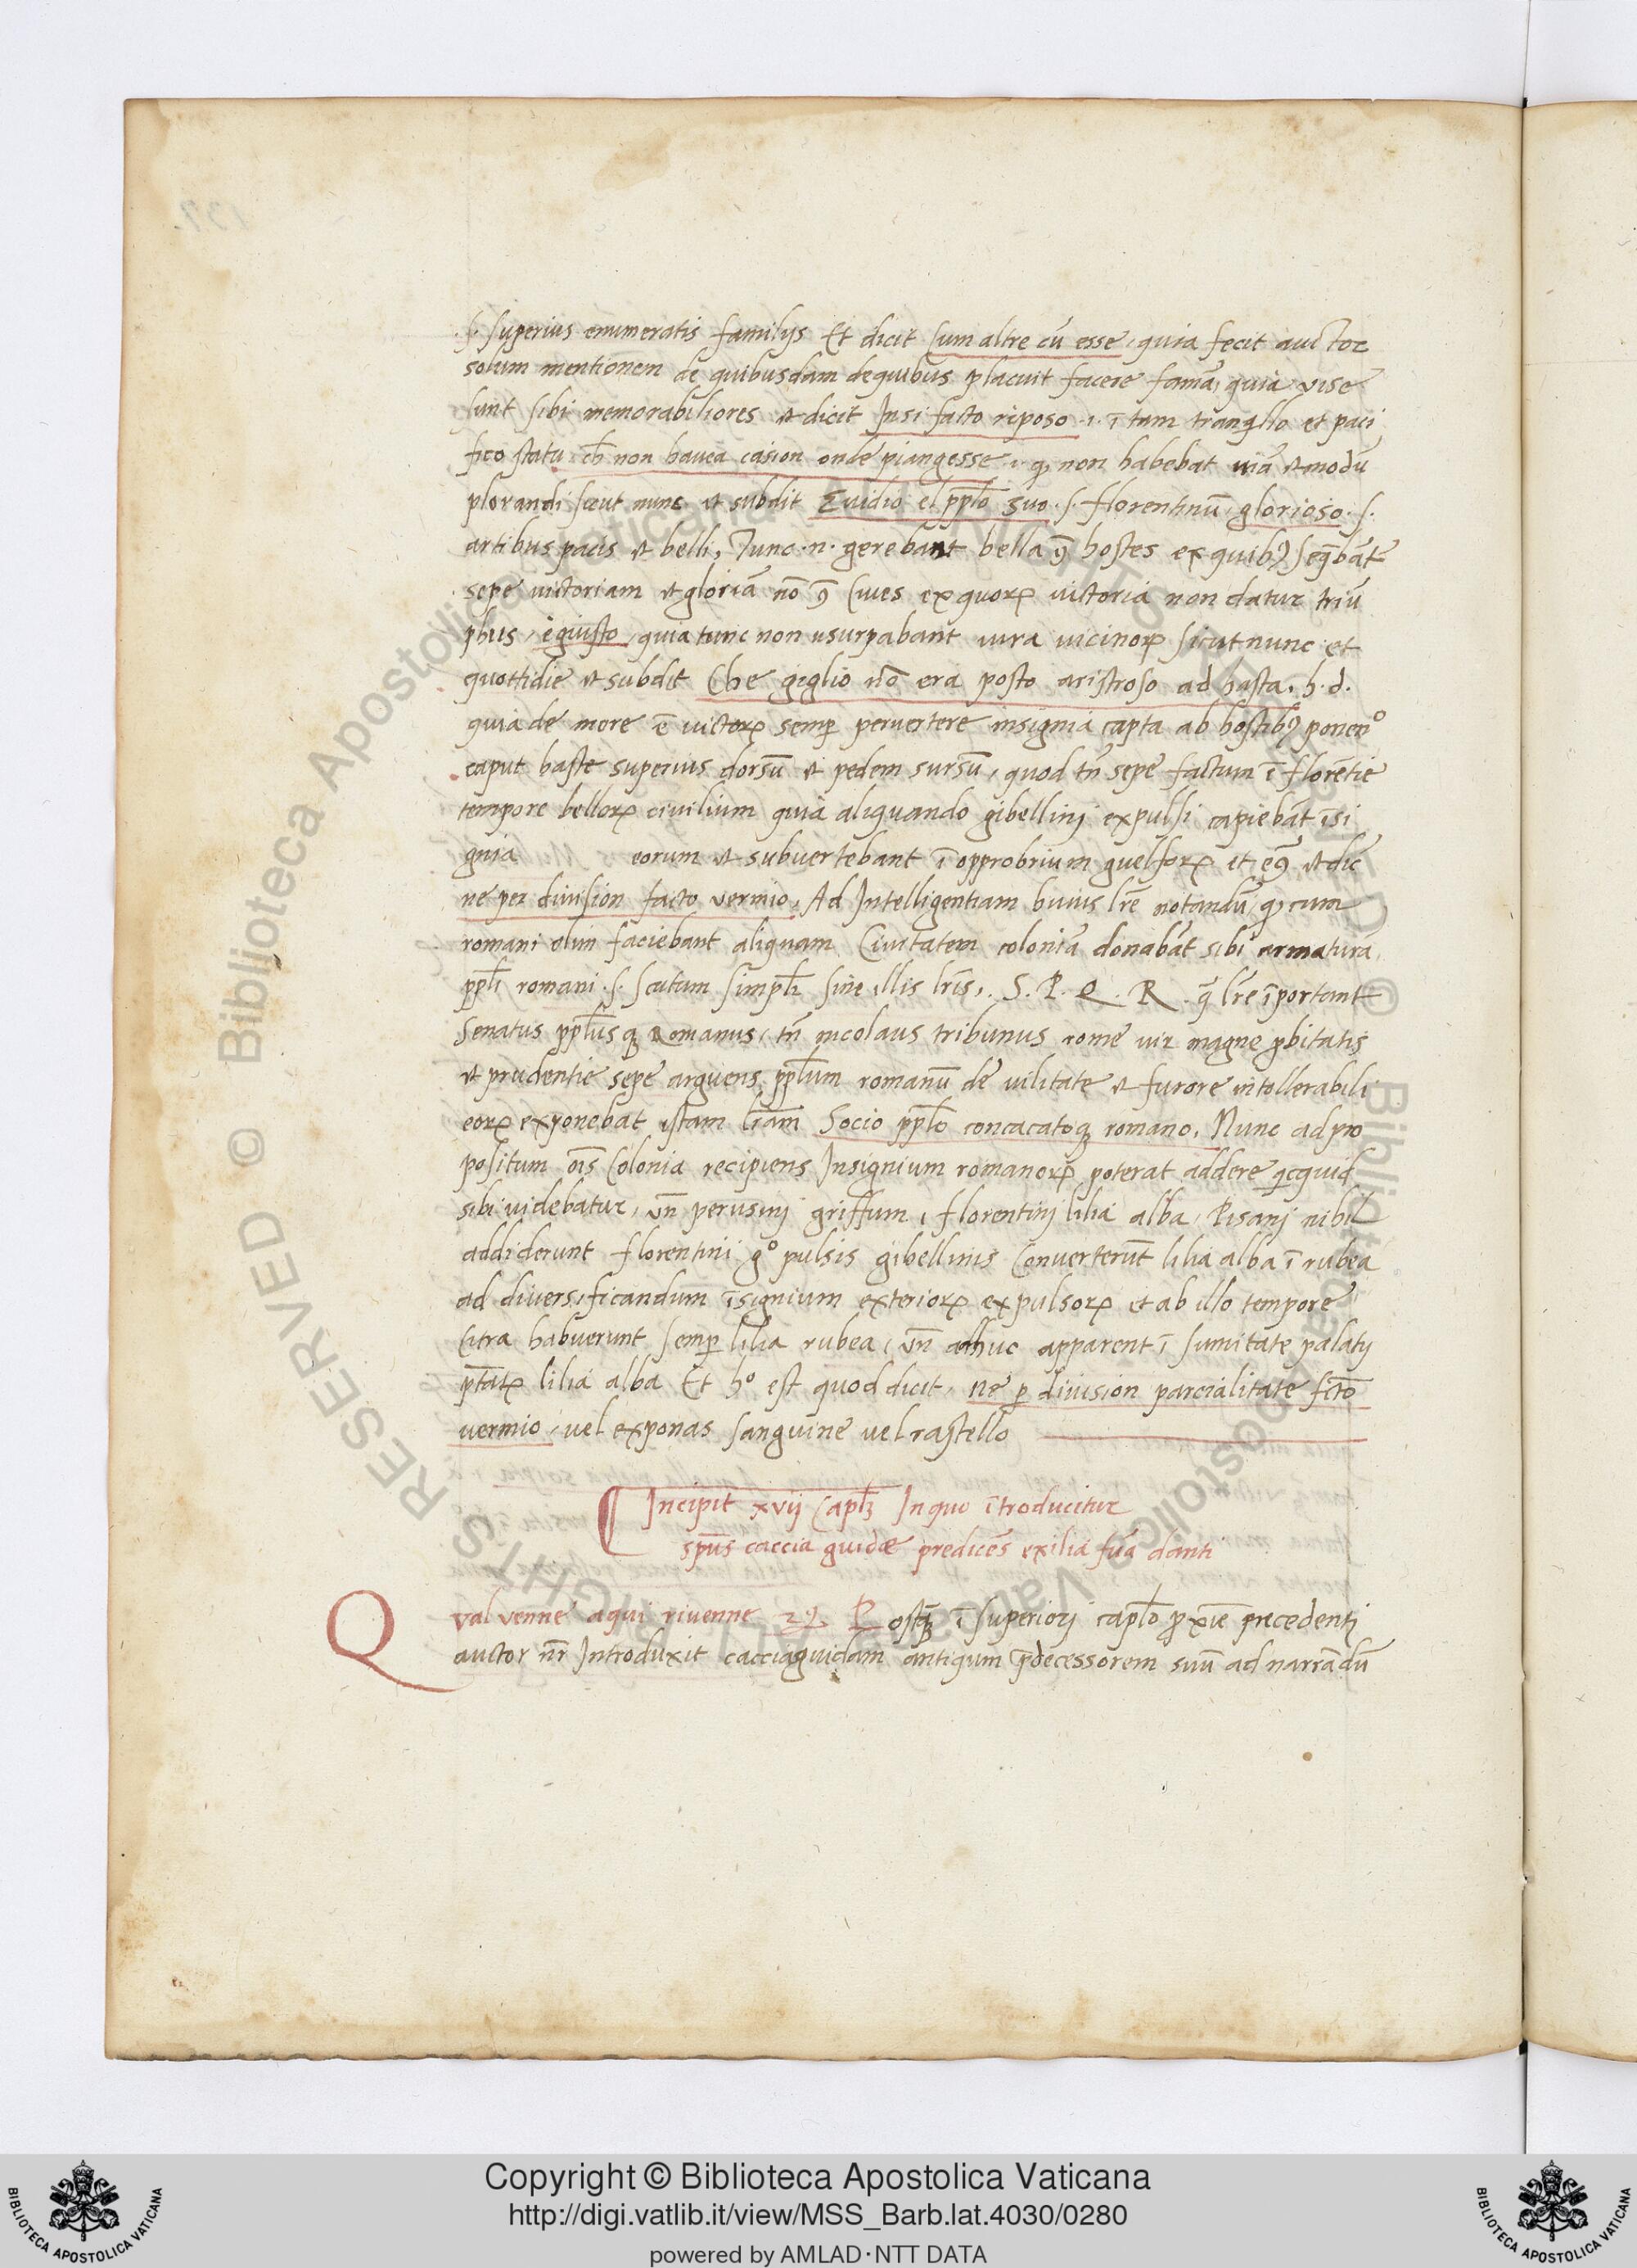 .s. superius enumeratis familijs Et dicit Cum altre cū esse, quia fecit auctor
solum mentionem de quibusdam de quibus placuit facere famā, quia vise
sunt sibi memorabiliores et dicit In si facto riposo .i. ī tam tranqllo et paci
fico statu ch̄ non havea casion onde piangesse .i. q, non habebat viā et modū
plorandi sicut nunc et subdit E vidio el ppl̄o suo .s. florentinū glorioso .s.
artibus pacis et belli, Tunc .n. gerebant bella 9̄ hostes ex quibꝫ seq̄bāt
sepe victoriam et gloriā nō 9̄ Cives ex quorꝝ victoria non datur triū
phus, e giusto, quia tunc non usurpabant iura vicinorꝝ sicut nunc et
quottidie et subdit Che giglio nō era posto aristroso ad hasta. h. d.
quia de more ē victorꝝ semp̱ pervertere insignia capta ab hostibꝫ ponenº
caput haste superius dorsū et pedem sursū, quod tn̄ sepe factum ē florētie
tempore bellorꝝ civilium quia aliquando gibellinj expulsi capiebāt īsi
gnia eorum et subvertebant ī opprobrium guelforꝝ et e9̄ et dic̄
ne per division facto vermio. Ad Intelligentiam huius lr̄e notandū q, cum
romani olim faciebant aliquam Civitatem coloniā donabāt sibi armaturā
ppl̄i romani .s. scutum simpl̄r sine illis lr̄is, . S. P. Q. R. q̄ lr̄e īportant
Senatus ppl̄usqꝫ Romanus, tn̄ nicolaus tribunus rome vir magne ꝓbitatis
et prudentie sepe arguens ppl̄um romanū de vilitate et furore intollerabili
eorꝝ exponebat istam lr̄am Socio ppl̄o concacatoqꝫ romano. Nunc ad pro
positum oīs Colonia recipiens Insignium romanorꝝ poterat addere qͥcquid
sibi videbatur, vn̄ perusinj griffum, florentinj lilia alba, Pisanj nihil
addiderunt florentini gº pulsis gibellinis Converterūt lilia alba ī rubea
ad diversificandum īsignium exteriorꝝ expulsorꝝ et ab illo tempore
Citra habuerunt semp̱ lilia rubea, vn̄ adhuc apparent ī sumitate palatij
pt̄atꝝ lilia alba Et hº est quod dicit, ne p̱ division parcialitate fct̄o
vermio, vel exponas sanguine vel rastello
Incipit xvij Capl̄ꝫ In quo ītroducitur
sp̄us caccia guidæ predicēs exilia sua danti
Qval venne a qui rivenne Postq̄ꝫ ī superiorj capl̄o ꝓxīe precedenti
auctor nr̄ Introduxit cacciaguidam antiqum p̄decessorem suū ad narrādū
Copyright © Biblioteca Apostolica Vaticana
http://digi.vatlib.it/view/MSS_Barb.lat.4030/0280
powered by AMLAD·NTT DATA
BIBLIOTECA APOSTOLICA VATICANA
BIBLIOTECA APOSTOLICA VATICANA